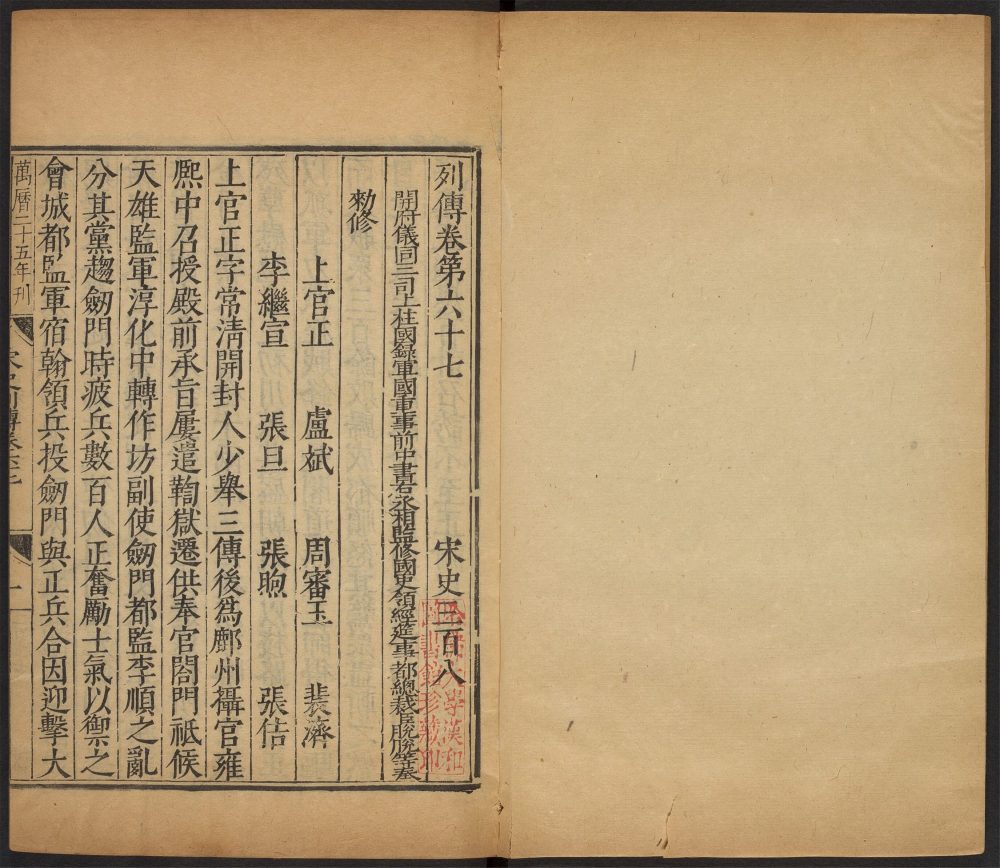 列傳卷第六十七 宋史三百八
開府儀同三司上柱國錄軍國重事前中書右丞相監修國史領經筵事都總裁臣脫脫等奉
勑修
上官正 盧斌 周審玉 裴濟
李繼宣 張旦 張煦 張佶
上官正字常清開封人少舉三傳後爲鄜州攝官雍
熙中召授殿前承旨屢遣鞫獄遷供奉官閤門祗候
天雄監軍淳化中轉作坊副使劒門都監李順之亂
分其黨趨劒門時疲兵數百人正奮勵士氣以禦之
會城都監軍宿翰領兵投劒門與正兵合因迎擊大
萬曆二十五年刊
宋史列傳卷六十七
一
哈佛大學漢和
圖書館珍藏印